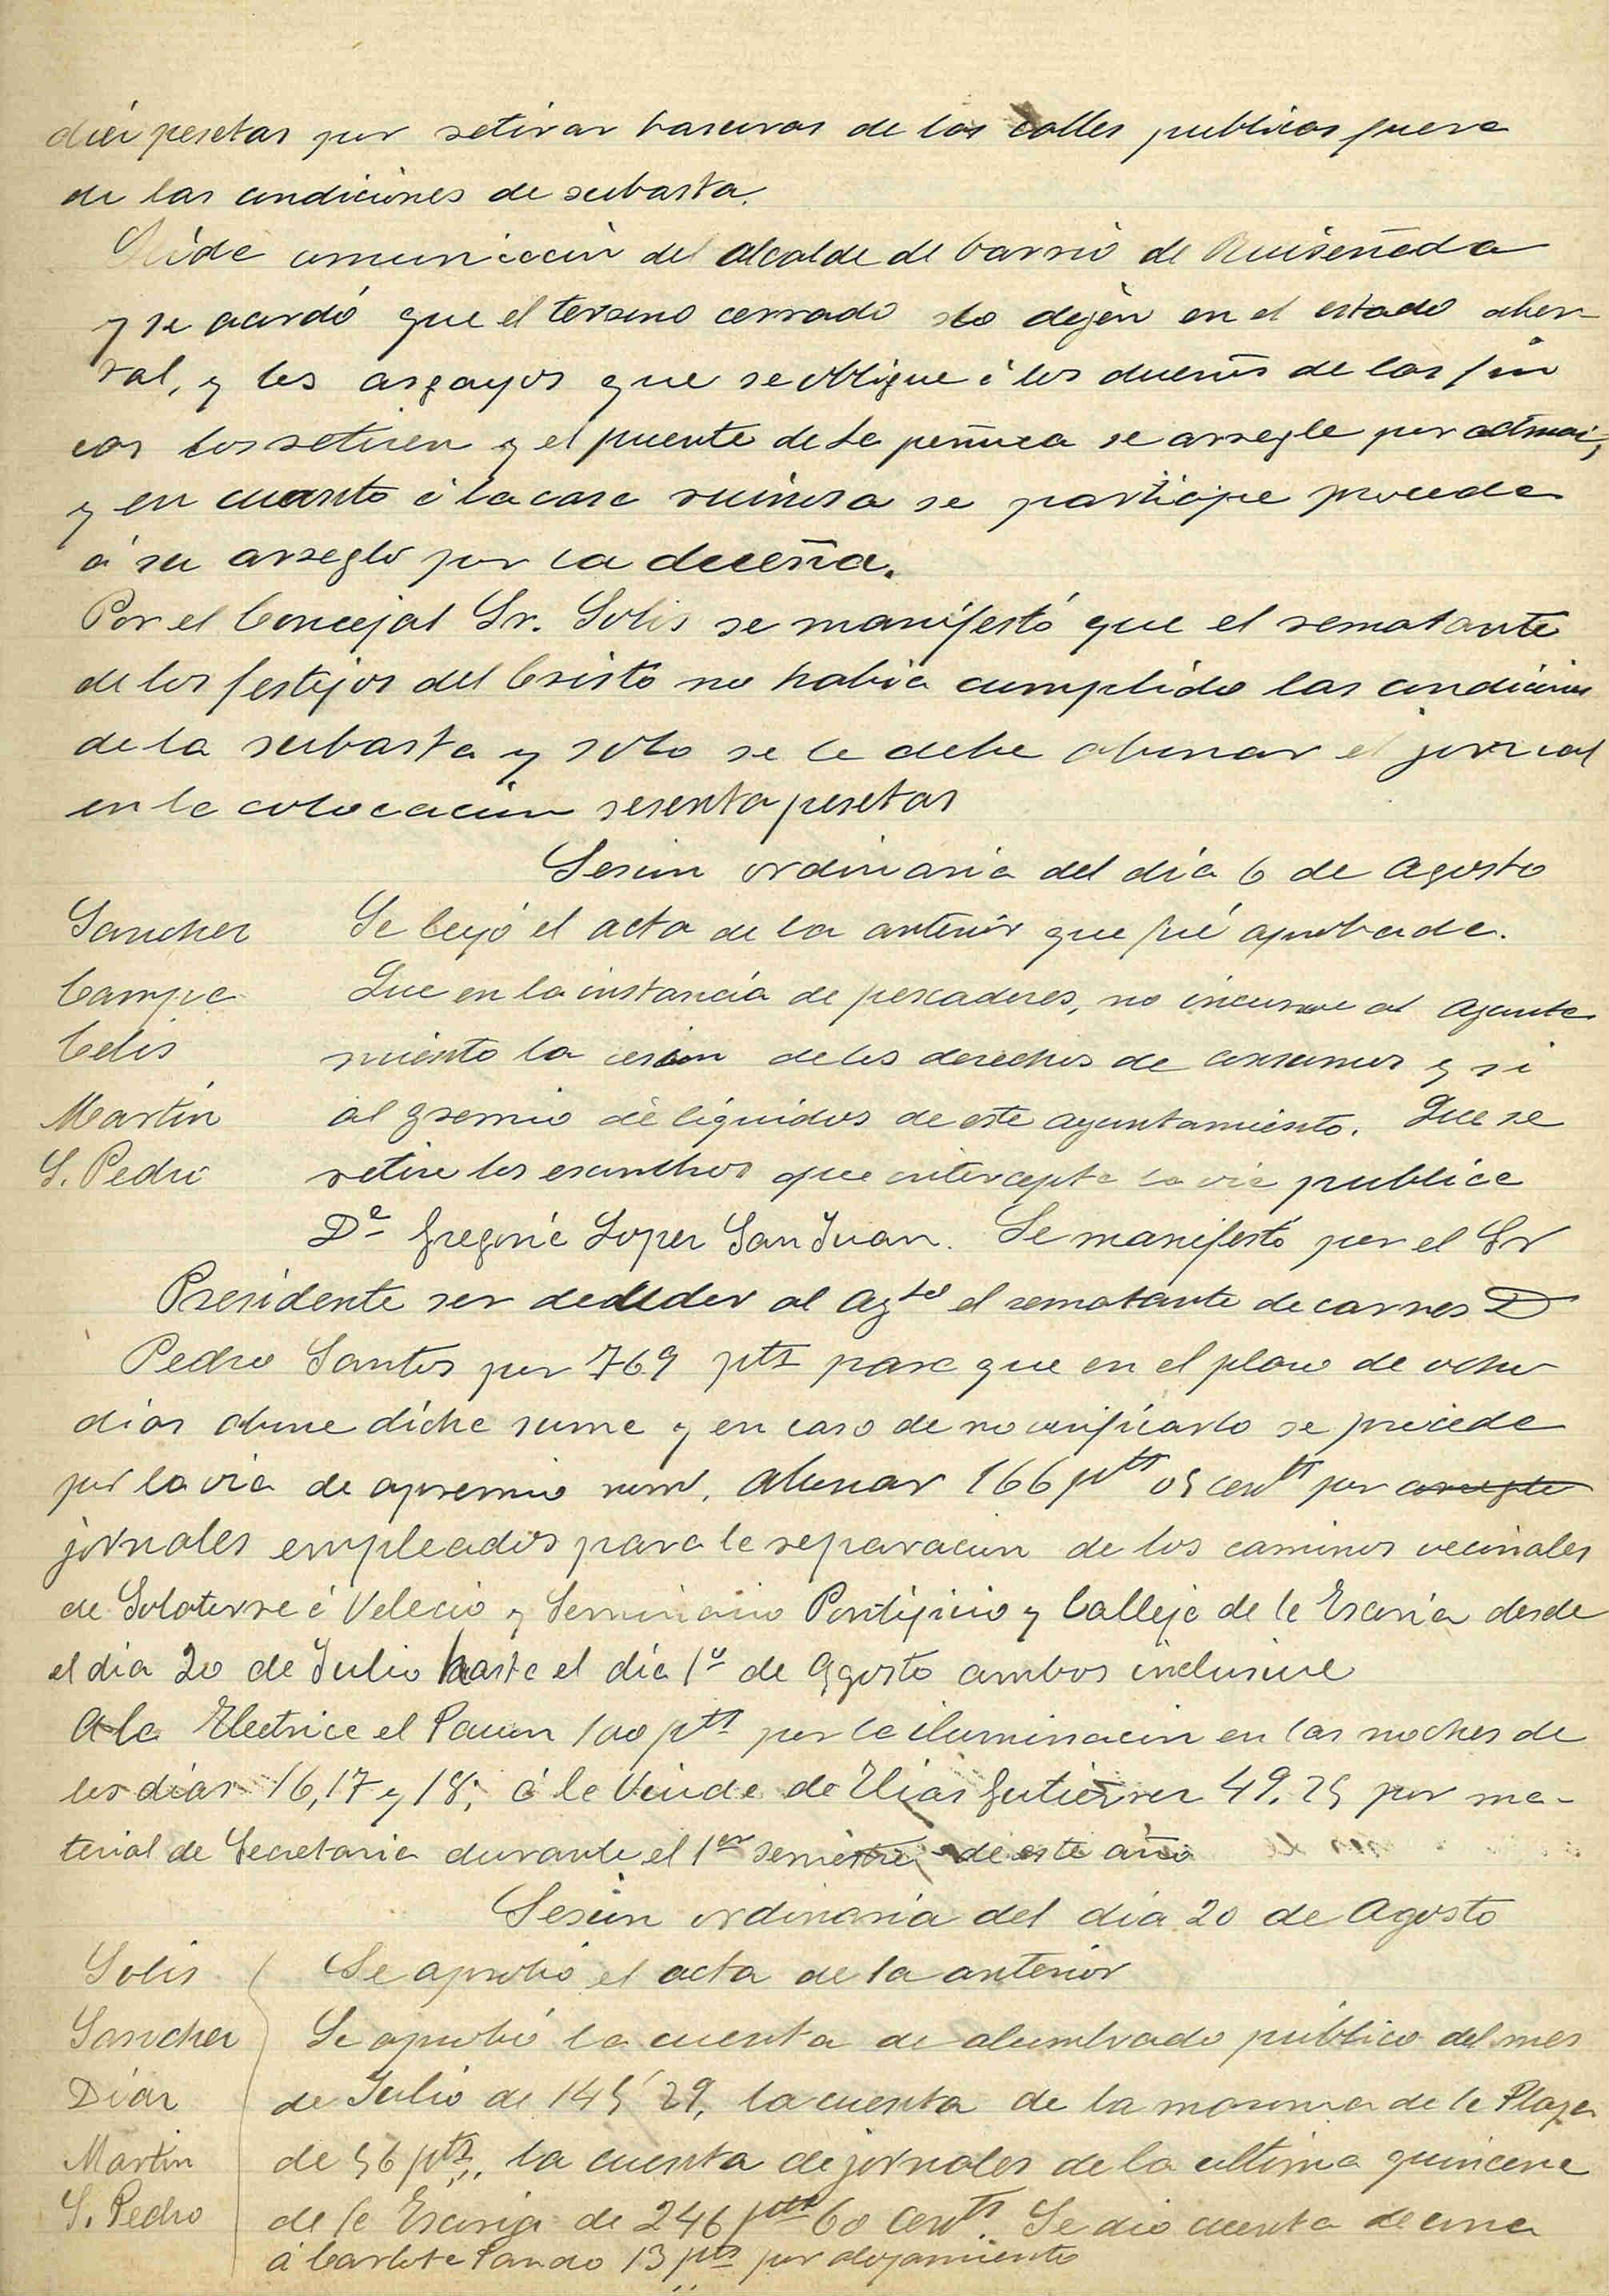 diez pesetas por retirar basuras de las calles publicas fuera
de las condiciones de subasta.
comunicación del alcalde de barrio de Ruiseñada
y se acordó que el terreno cerrado lo dejen en el estado aber-
tal, y los argayos que se obligue á los dueños de las fin
cas los retiren y el puente de la peñuca se arregle por admon,
y en cuanto á la casa ruinosa se participe proceda
á su arreglo por la dueña.
Por el Concejal Sr. Solis se manifestó que el rematante
de los festejos del Cristo no habia cumplido las condiciones
de la subasta y solo se le debe abonar el jornal
en la colocación sesenta pesetas
Sesion ordinaria del dia 6 de Agosto
Sanchez Se leyó el acta de la anterior que fué aprobada.
Campa Que en la instancia de pescadores, no incumbe al Ayunta-
Celis miento la cesion de los derechos de consumos y si
Martin al gremio de liquidos de este ayuntamiento. Que se
S. Pedro retire los escombros que intercepta la via publica
Dª Gregoria Lopez San Juan. Se manifestó por el Sr
Presidente ser deudor al Aytº el rematante de carnes D
Pedro Santos por 769 pts para que en el plazo de ocho
dias abone dicha suma y en caso de no verificarlo se proceda
por la via de apremio Abonar 166 pts 05 cents por arreglo
jornales empleados para la reparacion de los caminos vecinales
de Solatorre á Velecio y Seminario Pontificio y Calleja de la Esania desde
el dia 20 de Julio hasta el dia 1º de Agosto ambos inclusive
A la Electrica el 100 pts por la iluminacion en las noches de
los dias 16, 17 y 18; á la Viuda de Elias Gutierrez 49.25 por ma-
terial de Secretaria durante el 1er semestre de este año
Sesion ordinaria del dia 20 de Agosto
Solis Se aprobó el acta de la anterior
Sanchez Se aprobó la cuenta de alumbrado público del mes
Diaz de Julio de 145'29, la cuenta de la de la Plaza
Martin de 56 pts, la cuenta de jornales de la ultima quincena
S. Pedro de la Esania de 246 pts 60 cents. Se dio cuenta de una
á Carlota Pando 13 pts por alojamiento